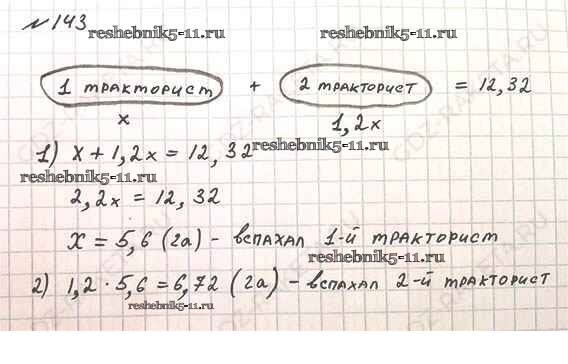 № 143
reshebnik5-11.ru reshebnik5-11.ru
1 тракторист + 2 тракторист = 12,32
x 1,2x
1) x + 1,2x = 12,32 reshebnik5-11.ru
reshebnik5-11.ru
2,2x = 12,32
x = 5,6 (га) - вспахал 1-й тракторист
reshebnik5-11.ru
2) 1,2 · 5,6 = 6,72 (га) - вспахал 2-й тракторист
reshebnik5-11.ru